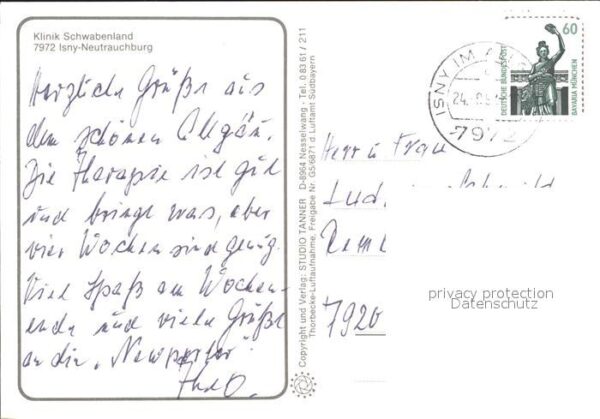 Klinik Schwabenland
7972 Isny-Neutrauchburg
Herzliche Grüße aus
dem schönen Allgäu.
Die Therapie ist gut
und bringt was, aber
vier Wochen sind genug.
Viel Spaß am Wochen-
ende und viele Grüße
an die „Newporter"!
Copyright und Verlag: STUDIO TANNER D-8964 Nesselwang - Tel. 0 83 61 / 211
Thorbecke-Luftaufnahme, Freigabe Nr. G5/6871 d Luftamt Südbayern
60
DEUTSCHE BUNDESPOST
BAVARIA MÜNCHEN
ISNY IM
24.
7972
Herr u Frau
7920
privacy protection
Datenschutz